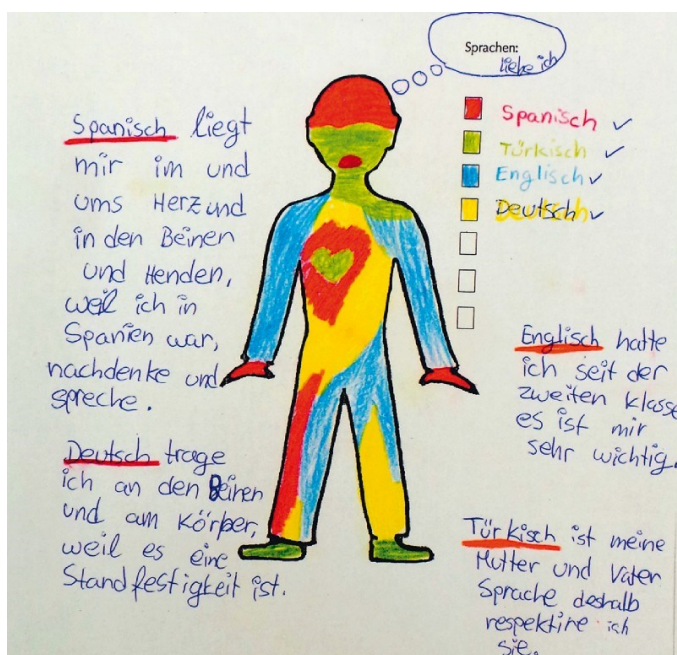 Sprachen:
liebe ich
Spanisch ✓
Türkisch ✓
Englisch ✓
Deutsch ✓
Spanisch liegt
mir im und
ums Herz und
in den Beinen
und Henden,
weil ich in
Spanien war,
nachdenke und
spreche.
Deutsch trage
ich an den Beinen
und am Körper,
weil es eine
Standfestigkeit ist.
Englisch hatte
ich seit der
zweiten Klasse
es ist mir
sehr wichtig.
Türkisch ist meine
Mutter und Vater
Sprache deshalb
respektire ich
sie.